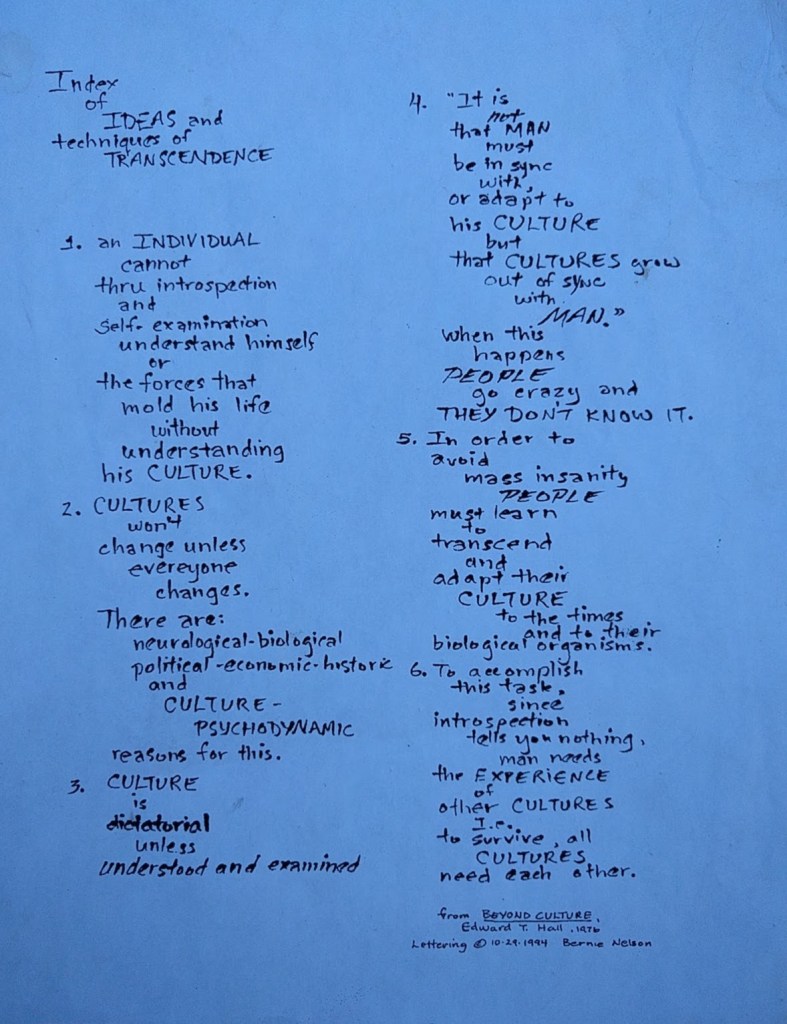 Index
of
IDEAS and
techniques of
TRANSCENDENCE
1. an INDIVIDUAL
cannot
thru introspection
and
self-examination
understand himself
or
the forces that
mold his life
without
understanding
his CULTURE.
2. CULTURES
won't
change unless
evereyone
changes.
There are:
neurological-biological
political-economic-historic
and
CULTURE-
PSYCHODYNAMIC
reasons for this.
3. CULTURE
is
dictatorial
unless
understood and examined
4. "It is
not
that MAN
must
be in sync
with,
or adapt to
his CULTURE
but
that CULTURES grow
out of sync
with
MAN."
when this
happens
PEOPLE
go crazy and
THEY DON'T KNOW IT.
5. In order to
avoid
mass insanity
PEOPLE
must learn
to
transcend
and
adapt their
CULTURE
to the times
and to their
biological organisms.
6. To accomplish
this task,
since
introspection
tells you nothing,
man needs
the EXPERIENCE
of
other CULTURES
I.e.
to survive, all
CULTURES
need each other.
from BEYOND CULTURE,
Edward T. Hall, 1976
Lettering © 10.29.1994 Bernie Nelson